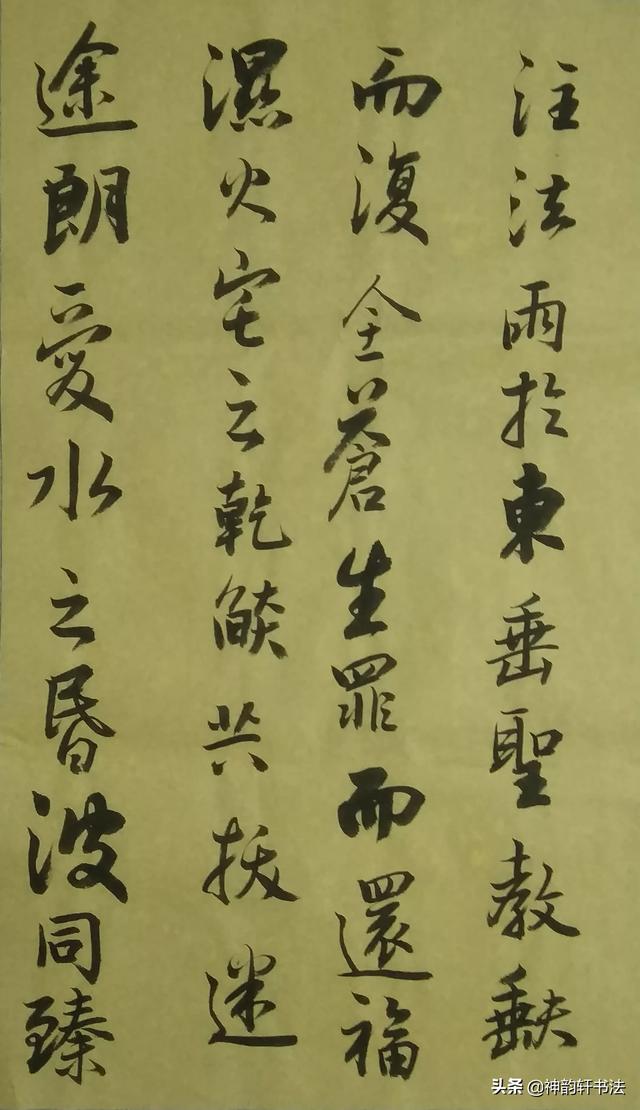 注法雨於東垂聖教缺
而復全蒼生罪而還福
濕火宅之乾燄共拔迷
途朗愛水之昏波同臻
头条 @神韵轩书法